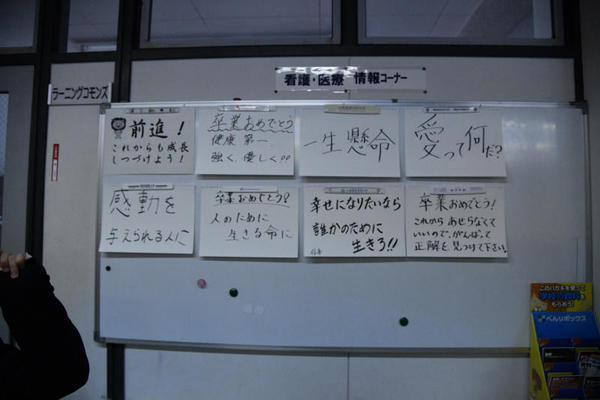 看護・医療 情報コーナー
ラーニングコモンズ
前進!
これからも成長
しつづけよう!
卒業おめでとう
健康第一
強く、優しく。
一生懸命
愛って何だ?
感動を
与えられる人に
卒業おめでとう!
人のために
生きる命に
幸せになりたいなら
誰かのために
生きろ!!
卒業おめでとう!
これから あせらなくて
いいので、がんばって
正解を見つけて下さい。
このハガキを使って
学校の資料を
もらおう!
べんりボックス